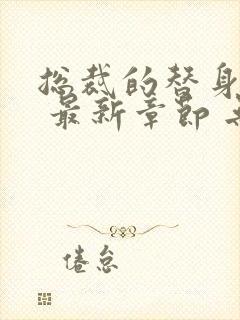 总裁的替身
最新章节
倦怠